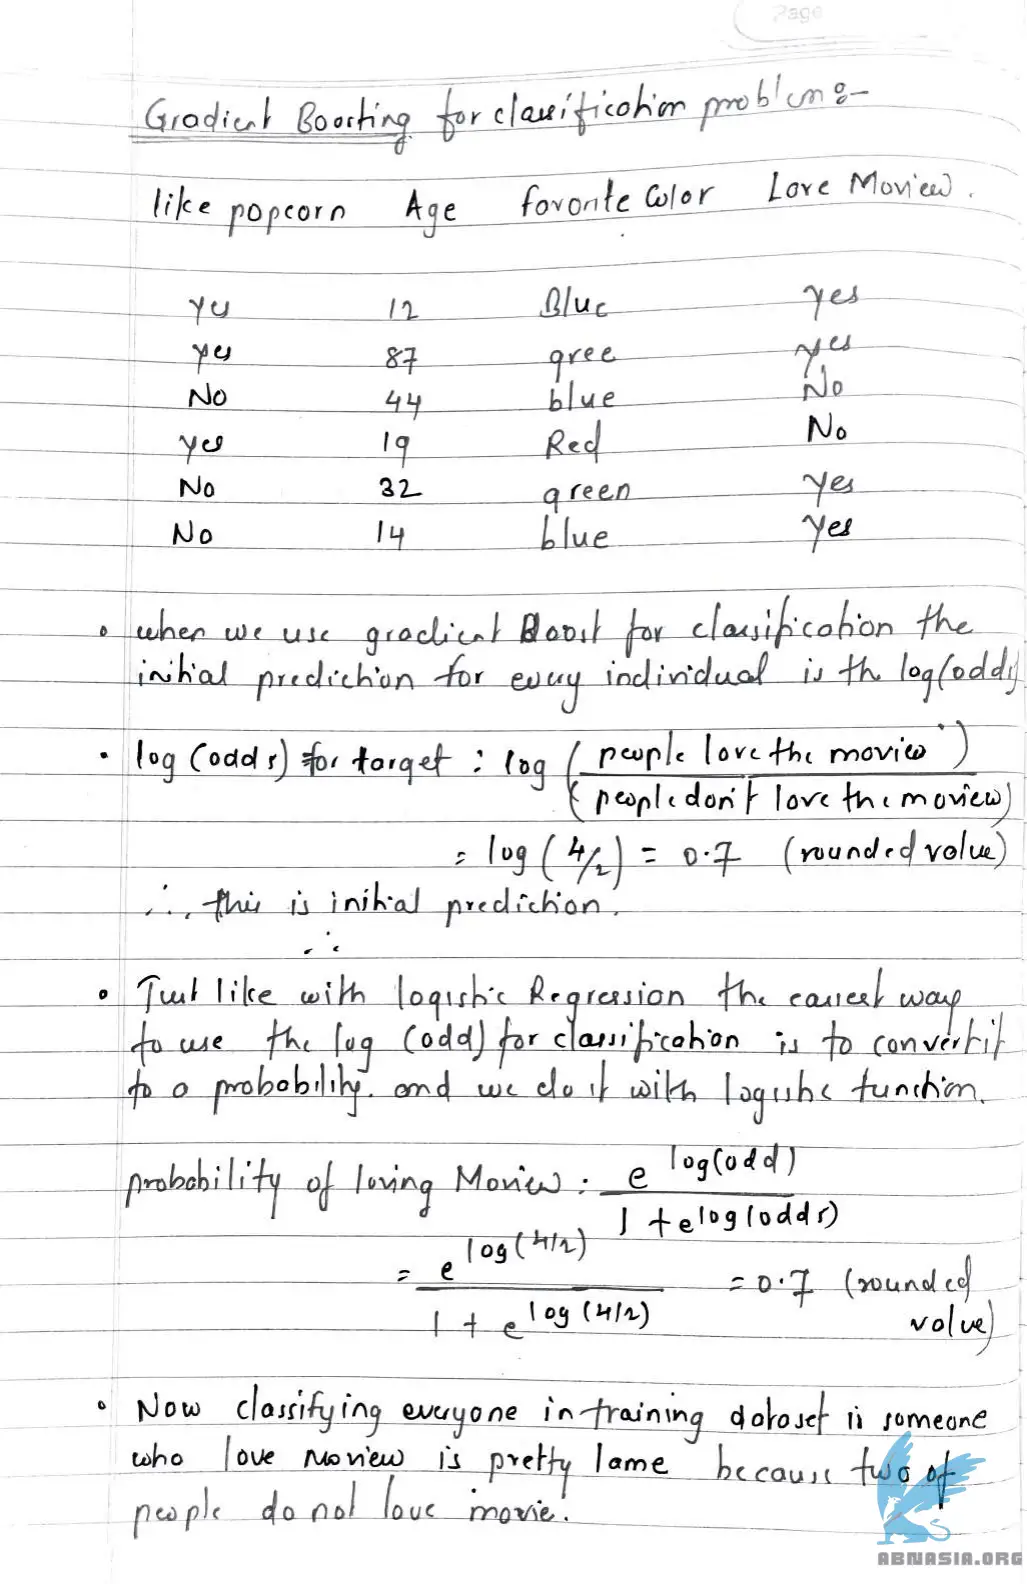 Page
Gradient Boosting for classification problem :-
like popcorn Age favorite Color Love Moview.
Yes 12 Blue yes
yes 87 gree yes
No 44 blue No
yes 19 Red No
No 32 green Yes
No 14 blue Yes
• when we use gradient Boost for classification the
initial prediction for every individual is th log(odds)
• log (odds) for target : log (people love the movies)
(people don't love the moview)
= log (4/2) = 0.7 (rounded value)
∴ this is initial prediction.
∴
• Just like with logistic Regression the easiest way
to use the log (odd) for classification is to convert it
to a probability. and we do it with logistic function.
probability of loving Moview : e log(odd)
1 + e log(odds)
= e log(4/2) = 0.7 (rounded
1 + e log(4/2) value)
• Now classifying everyone in training dataset is someone
who love Moview is pretty lame because two of
people do not love movie.
ABNASIA.ORG